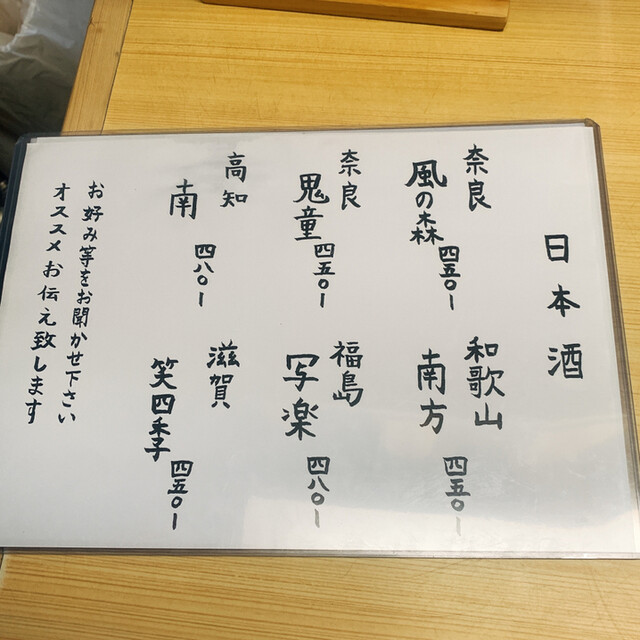 日本酒
奈良
風の森
四五〇ー
和歌山
南方
四五〇ー
奈良
鬼童
四五〇ー
福島
写楽
四八〇ー
高知
南
四八〇ー
滋賀
笑四季
四五〇ー
お好み等をお聞かせ下さい
オススメお伝え致します